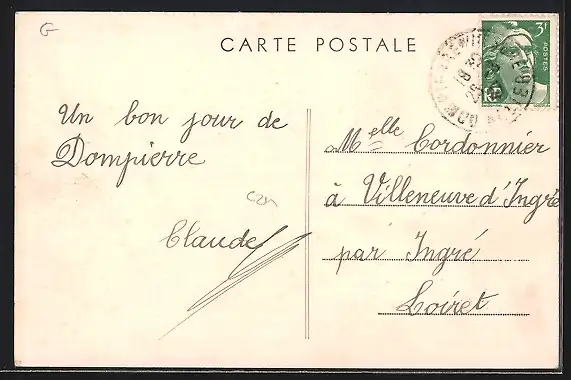 G
CARTE POSTALE
3F
POSTES
RF
Un bon jour de
Dompierre
Claude
Melle Cordonnier
à Villeneuve d'Ingré
par Ingré
Loiret